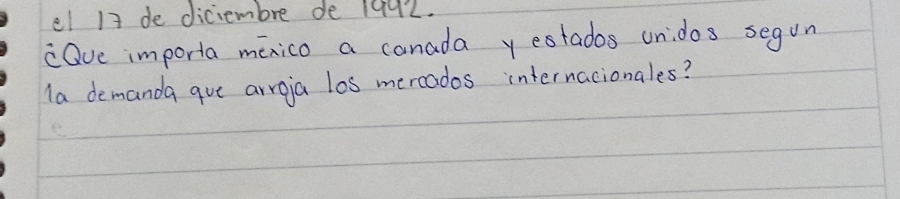 el 17 de diciembre de 1992.
¿Que importa mexico a canada y estados unidos segun
la demanda que arroja los mercados internacionales?